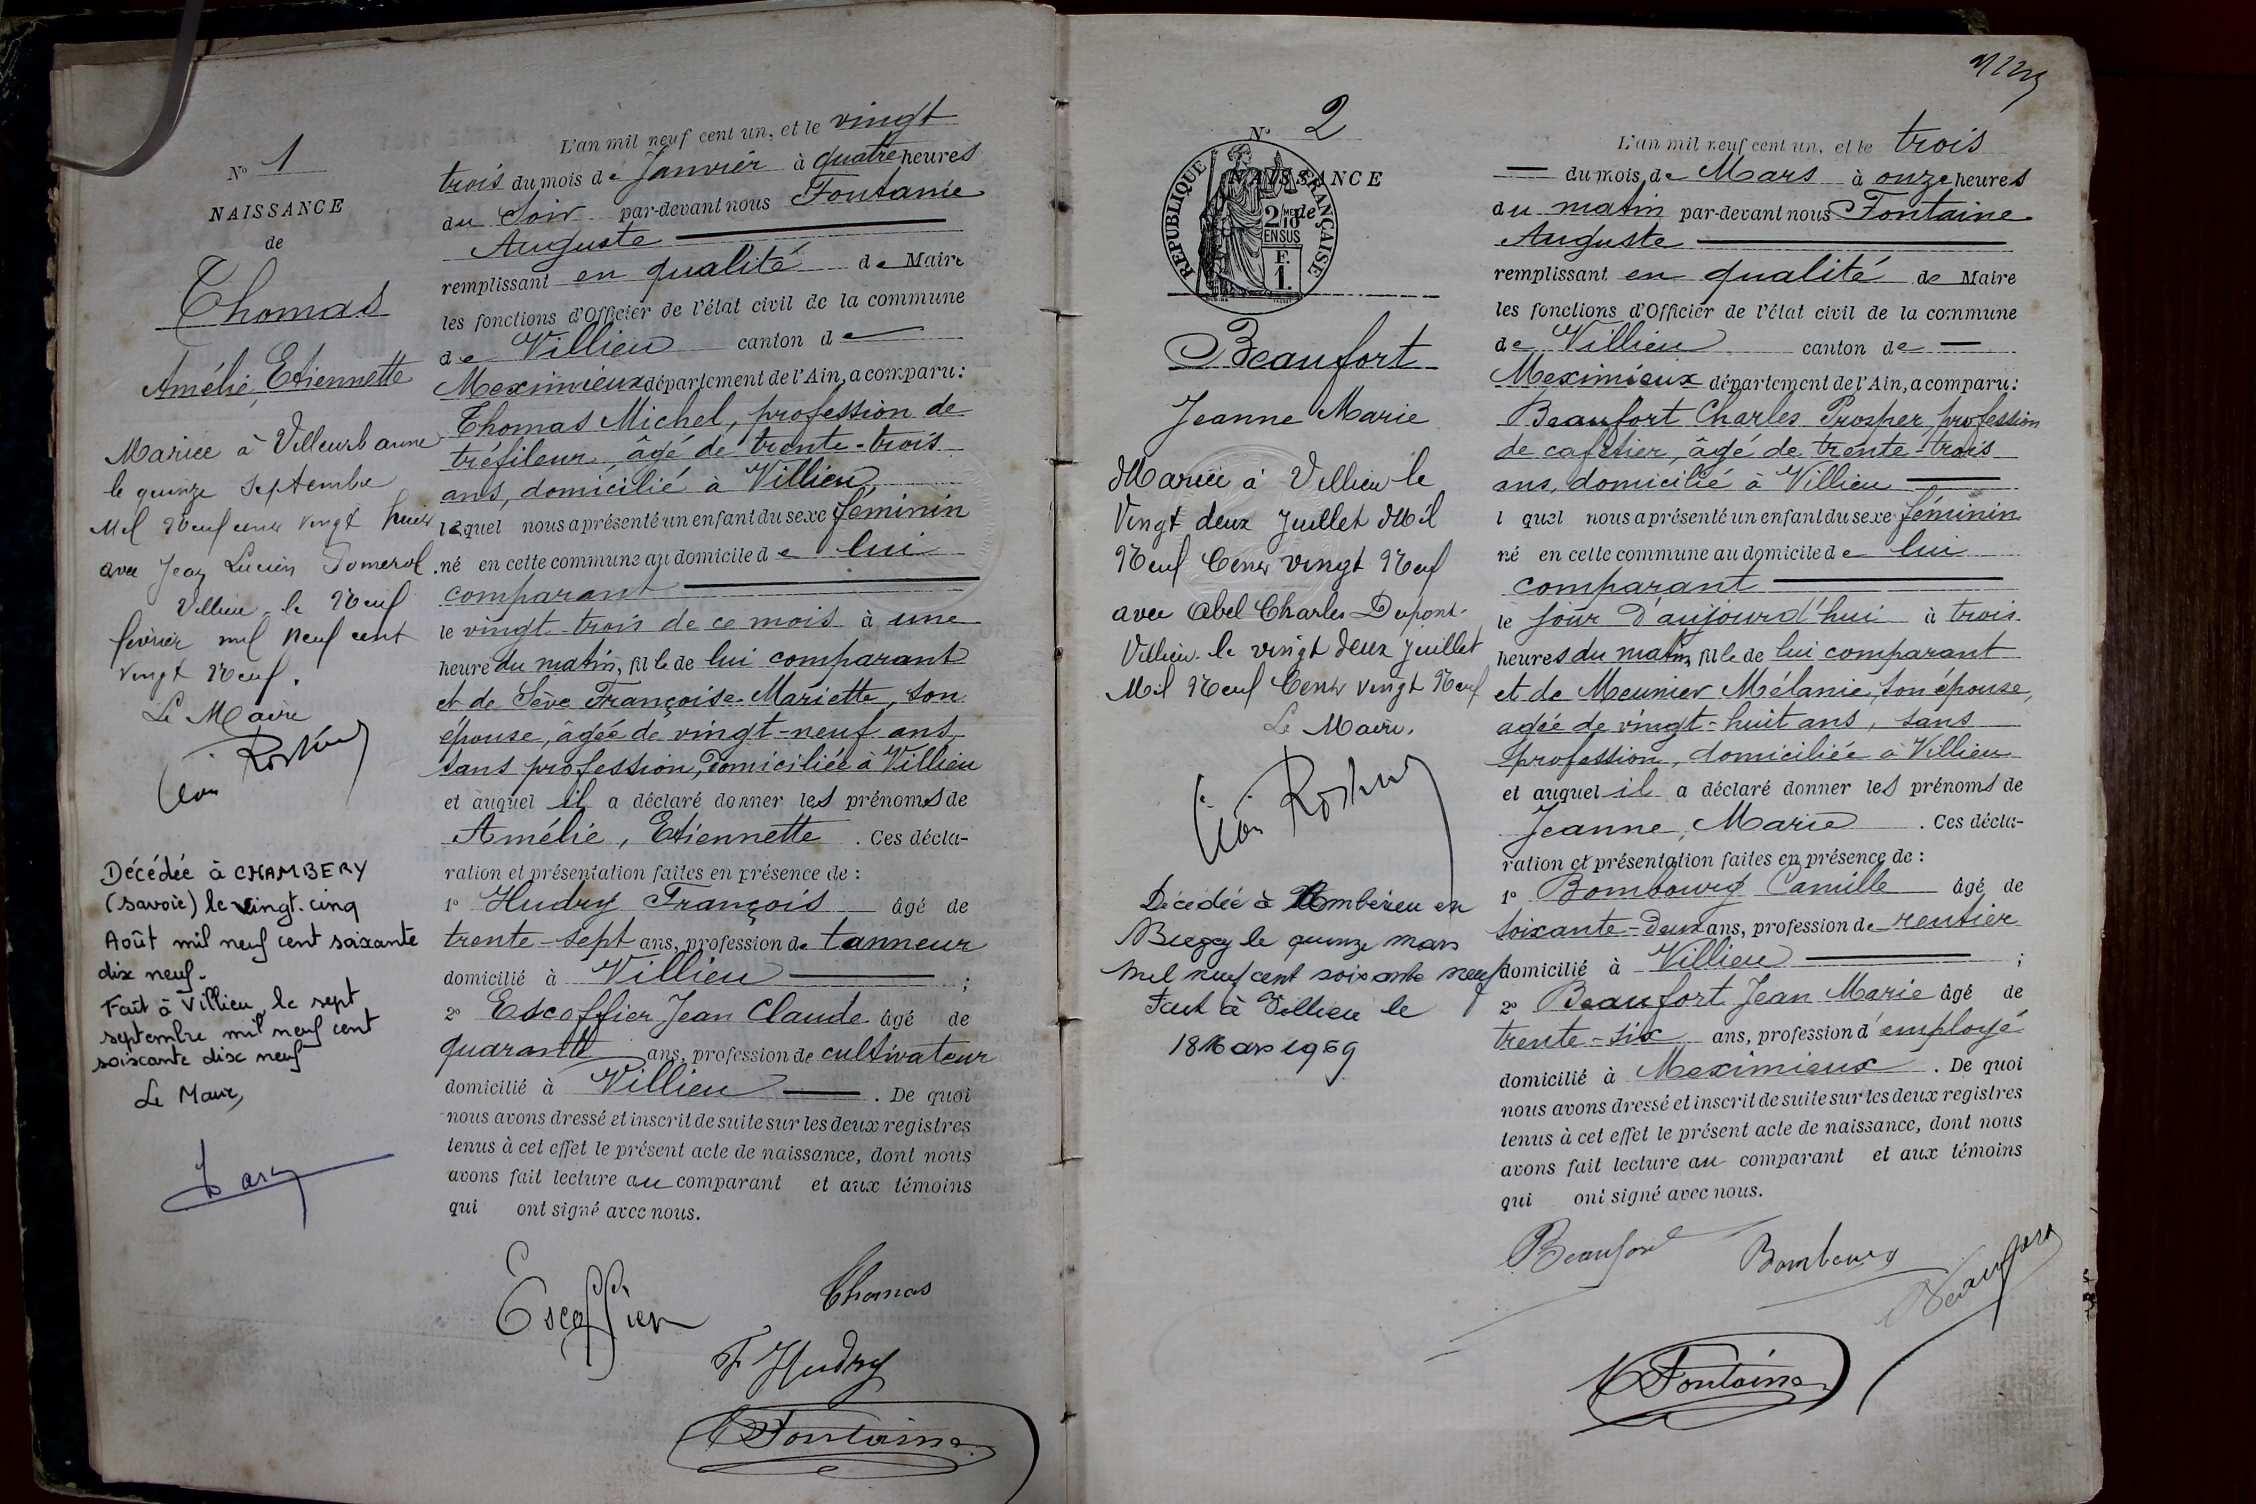 N° 1
NAISSANCE
de
Thomas
Amélie, Etiennette
Mariée à Villeurbanne
le quinze Septembre
Mil Neuf cent vingt huit
avec Jean Lucien Pomerol.
Villieu le Neuf
février mil neuf cent
vingt Neuf.
Le Maire
Décédée à CHAMBERY
(Savoie) le vingt-cinq
Août mil neuf cent soixante
dix neuf.
Fait à Villieu, le sept
septembre mil neuf cent
soixante dix neuf
Le Maire,
L'an mil neuf cent un, et le vingt
trois du mois de Janvier à quatre heures
du Soir par-devant nous Fontaine
Auguste
remplissant en qualité de Maire
les fonctions d'Officier de l'état civil de la commune
de Villieu canton de
Meximieux département de l'Ain, a comparu :
Thomas Michel, profession de
tréfileur, âgé de trente-trois
ans, domicilié à Villieu,
lequel nous a présenté un enfant du sexe féminin
né en cette commune au domicile de lui
comparant
le vingt-trois de ce mois à une
heure du matin, fille de lui comparant
et de Sève Françoise Mariette, son
épouse, âgée de vingt-neuf ans,
sans profession, domiciliée à Villieu
et auquel il a déclaré donner les prénoms de
Amélie, Etiennette. Ces décla-
ration et présentation faites en présence de :
1° Hudry François âgé de
trente-sept ans, profession de tanneur
domicilié à Villieu ;
2° Escoffier Jean Claude âgé de
quarante ans, profession de cultivateur
domicilié à Villieu. De quoi
nous avons dressé et inscrit de suite sur les deux registres
tenus à cet effet le présent acte de naissance, dont nous
avons fait lecture au comparant et aux témoins
qui ont signé avec nous.
Escoffier
Thomas
F Hudry
Fontaine
N° 2
NAISSANCE
de
REPUBLIQUE FRANÇAISE
2/10 MES
EN SUS
F.
1.
Beaufort
Jeanne Marie
Mariée à Villieu le
Vingt deux Juillet Mil
Neuf Cent vingt Neuf
avec Abel Charles Dupont.
Villieu le vingt deux Juillet
Mil Neuf Cent vingt Neuf
Le Maire.
Décédée à Ambérieu en
Bugey le quinze mars
mil neuf cent soixante neuf
Fait à Villieu le
18 Mars 1969
L'an mil neuf cent un, et le trois
du mois de Mars à onze heures
du matin par-devant nous Fontaine
Auguste
remplissant en qualité de Maire
les fonctions d'Officier de l'état civil de la commune
de Villieu canton de
Meximieux département de l'Ain, a comparu :
Beaufort Charles Prosper profession
de cafetier, âgé de trente-trois
ans, domicilié à Villieu
l quel nous a présenté un enfant du sexe féminin
né en cette commune au domicile de lui
comparant
le jour d'aujourd'hui à trois
heures du matin, fille de lui comparant
et de Meunier Mélanie, son épouse,
agée de vingt-huit ans, sans
profession, domiciliée à Villieu
et auquel il a déclaré donner les prénoms de
Jeanne, Marie. Ces décla-
ration et présentation faites en présence de :
1° Bombourg Camille âgé de
soixante-deux ans, profession de rentier
domicilié à Villieu ;
2° Beaufort Jean Marie âgé de
trente-six ans, profession d'employé
domicilié à Meximieux. De quoi
nous avons dressé et inscrit de suite sur les deux registres
tenus à cet effet le présent acte de naissance, dont nous
avons fait lecture au comparant et aux témoins
qui ont signé avec nous.
Beaufort
Bombourg
Beaufort
Fontaine